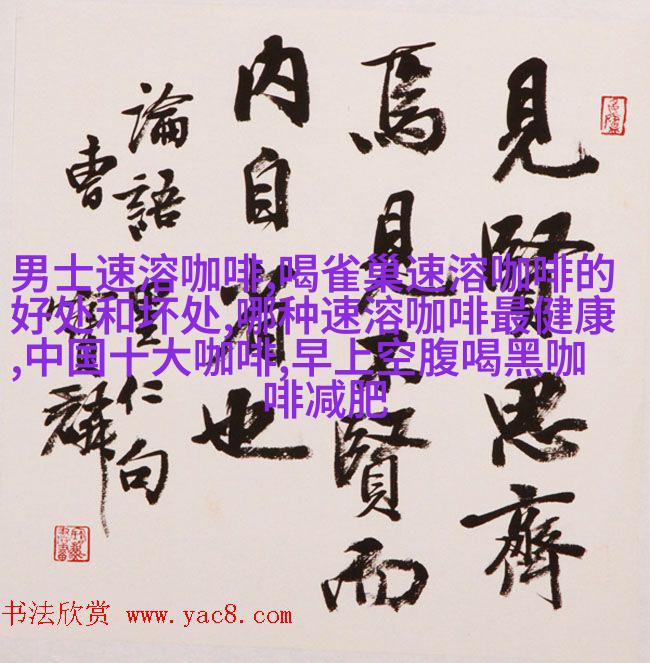 見賢思齊
焉見不賢而
内自省也
論語里仁句
曹寶麟
男士速溶咖啡,喝雀巢速溶咖啡的
好处和坏处,哪种速溶咖啡最健康
,中国十大咖啡,早上空腹喝黑咖
啡减肥
书法欣赏 www.yac8.com